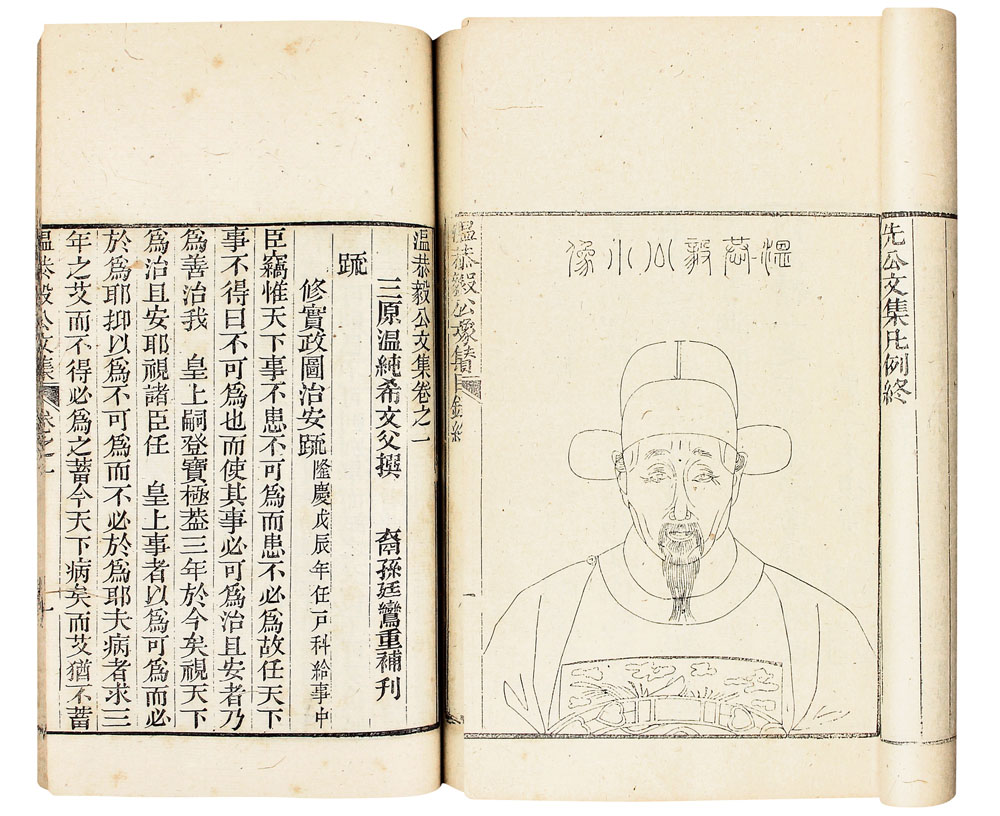 先公文集凡例終
溫恭毅公小像
溫恭毅公
溫恭毅公文集卷之一
三原溫純希文父撰 裔孫廷鸞重補刋
疏
修實政圖治安疏 隆慶戊辰年任戸科給事中
臣竊惟天下事不患不可爲而患不必爲故任天下
事不得曰不可爲也而使其事必可爲治且安者乃
爲善治我 皇上嗣登寶極葢三年於今矣視天下
爲治且安耶視諸臣任 皇上事者以爲可爲而必
於爲耶抑以爲不可爲而不必於爲耶夫病者求三
年之艾而不得必爲之蓄今天下病矣而艾猶不蓄
溫恭毅公文集 卷之一 一